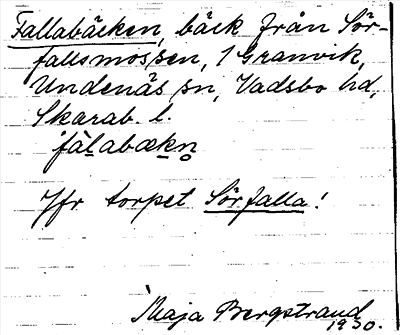 Fallabäcken, bäck från Sör-
fallsmossen, 1 Granvik,
Undenäs sn, Vadsbo hd,
Skarab. l.
fàlabækn
Jfr torpet Sörfalla!
Maja Bergstrand
1930.